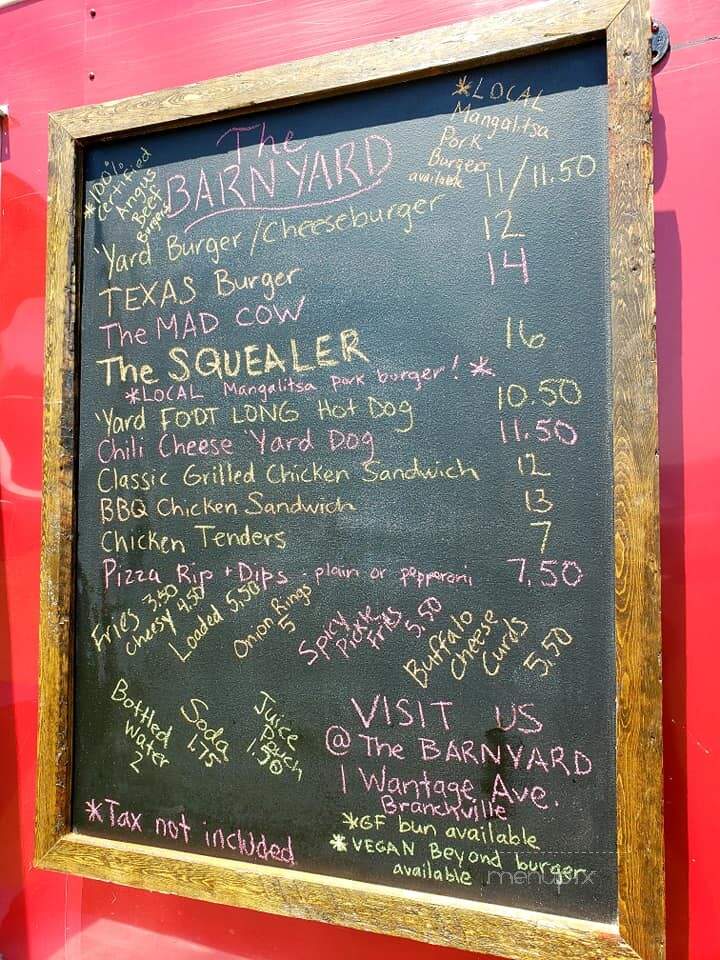 The
BARNYARD
*100%
Certified
Angus
Beef
Burgers
*LOCAL
Mangalitsa
Pork
Burgers
available
'Yard Burger/Cheeseburger 11/11.50
TEXAS Burger 12
The MAD COW 14
The SQUEALER 16
*LOCAL Mangalitsa Pork burger! *
'Yard FOOT LONG Hot Dog 10.50
Chili Cheese 'Yard Dog 11.50
Classic Grilled Chicken Sandwich 12
BBQ Chicken Sandwich 13
Chicken Tenders 7
Pizza Rip + Dips - plain or pepperoni 7.50
Fries 3.50
Cheesy 4.50
Loaded 5.50
Onion Rings
5
Spicy
Pickle
Fries 5.50
Buffalo
Cheese
Curds 5.50
Bottled
Water
2
Soda
1.75
Juice
Pouch
1.50
VISIT US
@ The BARNYARD
1 Wantage Ave.
Branchville
*GF bun available
*VEGAN Beyond burger
available
*Tax not included
menupix